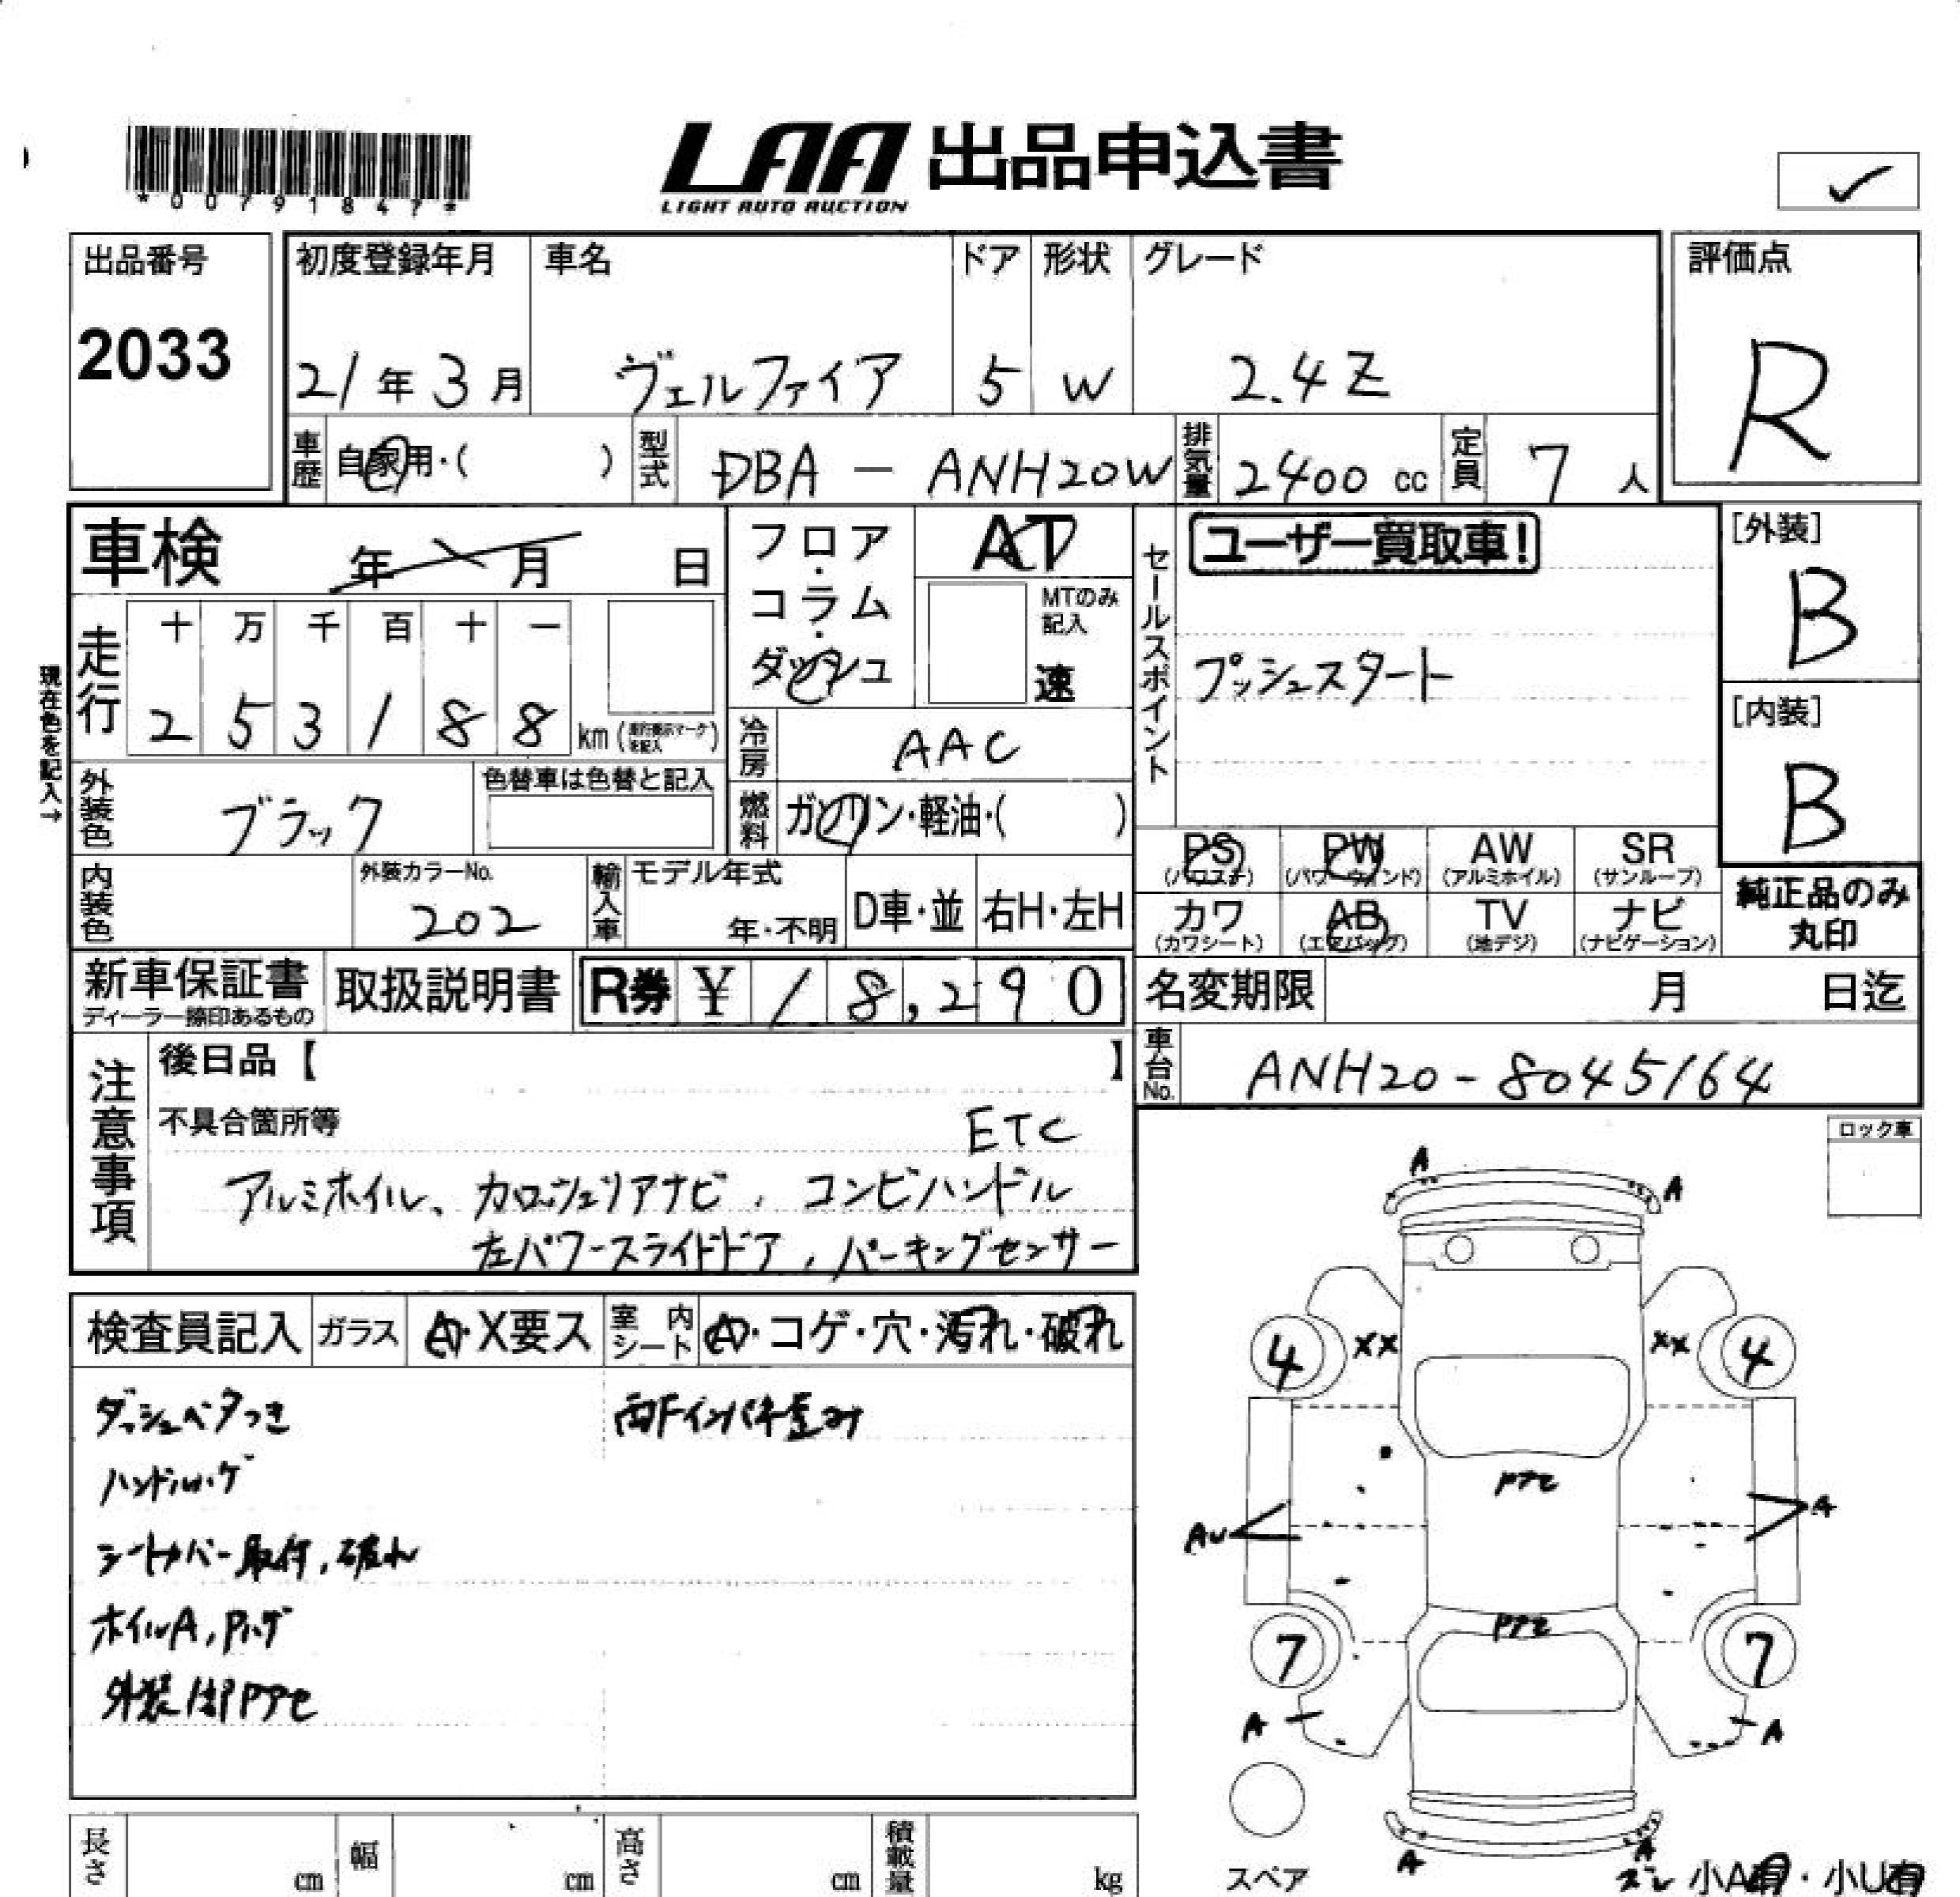 *00791847*
LAA 出品申込書
LIGHT AUTO AUCTION
出品番号
2033
初度登録年月
21年3月
車名
ヴェルファイア
ドア
5
形状
W
グレード
2.4Z
評価点
R
車歴
自家用・( )
型式
DBA - ANH20W
排気量
2400 cc
定員
7 人
車検 年 月 日
走行
十 万 千 百 十 一
2 5 3 1 8 8 km
現在色を記入→
フロア・コラム・ダッシュ
AT
MTのみ記入
速
冷房
AAC
燃料
ガソリン・軽油・( )
セールスポイント
ユーザー買取車!
プッシュスタート
[外装]
B
[内装]
B
外装色
ブラック
色替車は色替と記入
内装色
外装カラーNo.
202
輸入車
モデル年式
年・不明
D車・並
右H・左H
PS
(パワステ)
PW
(パワーウインド)
AW
(アルミホイル)
SR
(サンルーフ)
カワ
(カワシート)
AB
(エアバッグ)
TV
(地デジ)
ナビ
(ナビゲーション)
純正品のみ
丸印
新車保証書
ディーラー捺印あるもの
取扱説明書
R券 ¥ 18,290
名変期限 月 日迄
車台No.
ANH20-8045164
注意事項
後日品【 】
不具合箇所等
ETC
アルミホイル、カロッツェリアナビ、コンビハンドル
左パワースライドドア、パーキングセンサー
ロック車
検査員記入
ガラス
A・X要ス
室内シート
A・コゲ・穴・汚れ・破れ
ダッシュベタつき
両Fインパネ歪み
ハンドルハゲ
シートカバー取付、破れ
ホイルA、Pハゲ
外装1部Pアセ
A
A
4
XX
XX
4
Pアセ
AU
A
Pアセ
7
7
A
A
A
A
ズレ
スペア
小A有・小U有
長さ cm
幅 cm
高さ cm
積載量 kg